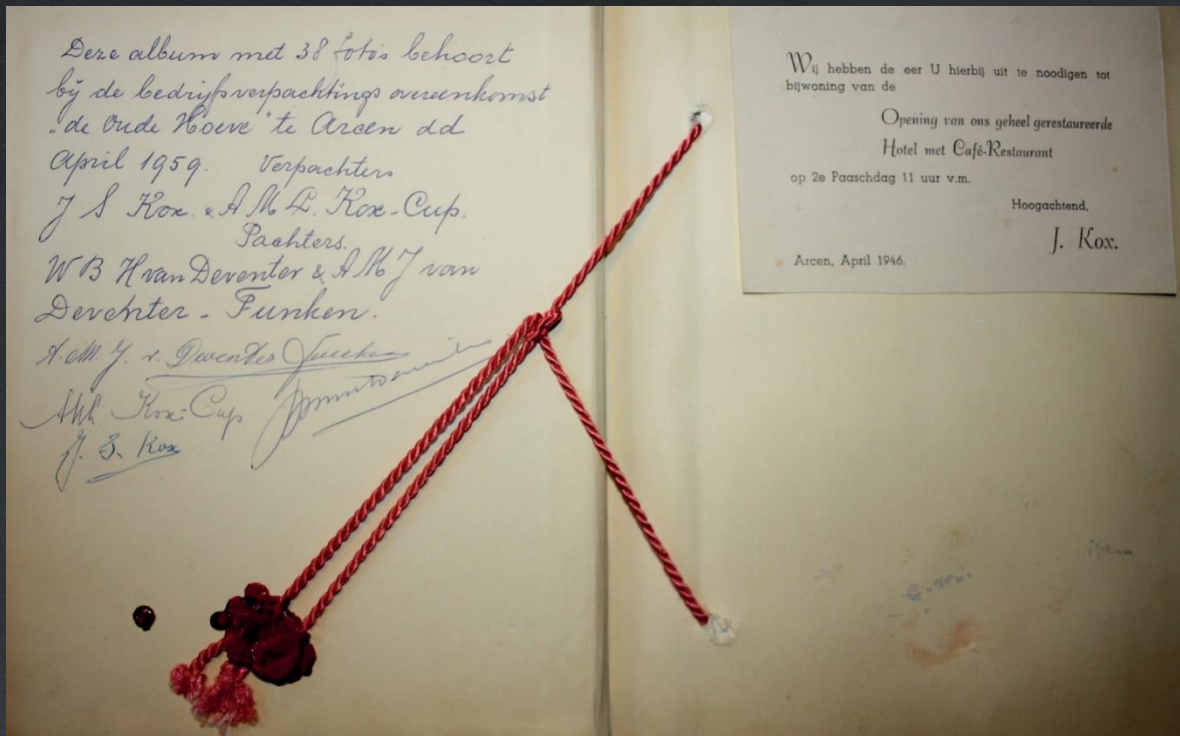 Deze album met 38 foto's behoort
bij de bedrijfsverpachtings overeenkomst
"de Oude Hoeve" te Arcen dd
April 1959. Verpachters
J S Kox. & A M L. Kox-Cup.
Pachters.
W B H van Deventer & A M J van
Deventer - Funken.
A. M. J. v. Deventer Funken
Kox-Cup
J. S. Kox
Wij hebben de eer U hierbij uit te noodigen tot
bijwoning van de
Opening van ons geheel gerestaureerde
Hotel met Café-Restaurant
op 2e Paaschdag 11 uur v.m.
Hoogachtend,
J. Kox.
Arcen, April 1946.